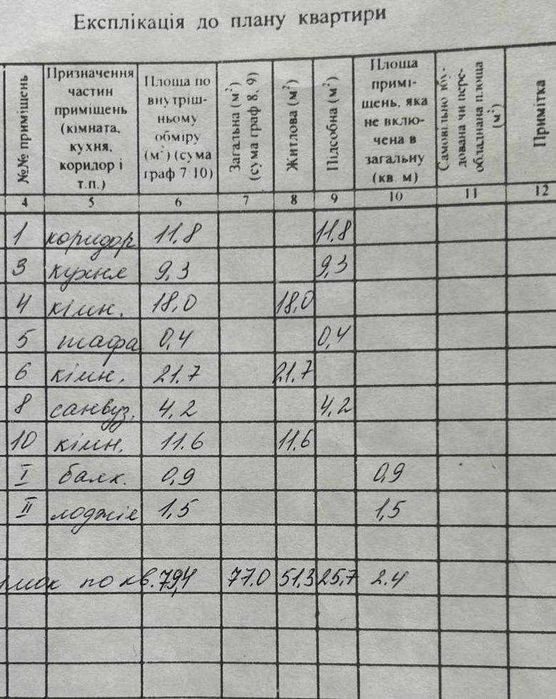 Експлікація до плану квартири
№№ приміщень
Призначення
частин
приміщень
(кімната,
кухня,
коридор і
т.п.)
Площа по
внутріш-
ньому
обміру
(м²) (сума
граф 7 10)
Загальна (м²)
(сума граф 8, 9)
Житлова (м²)
Підсобна (м²)
Площа
примі-
щень, яка
не вклю-
чена в
загальну
(кв. м)
Самовільно збу-
дована чи пере-
обладнана площа
(м²)
Примітка
4 5 6 7 8 9 10 11 12
1 коридор 11,8 11,8
3 кухня 9,3 9,3
4 кімн. 18,0 18,0
5 шафа 0,4 0,4
6 кімн. 21,7 21,7
8 санвуз. 4,2 4,2
10 кімн. 11.6 11,6
I балк. 0,9 0,9
II лоджія 1,5 1,5
по кв. 79,4 77.0 51,3 25,7 2.4